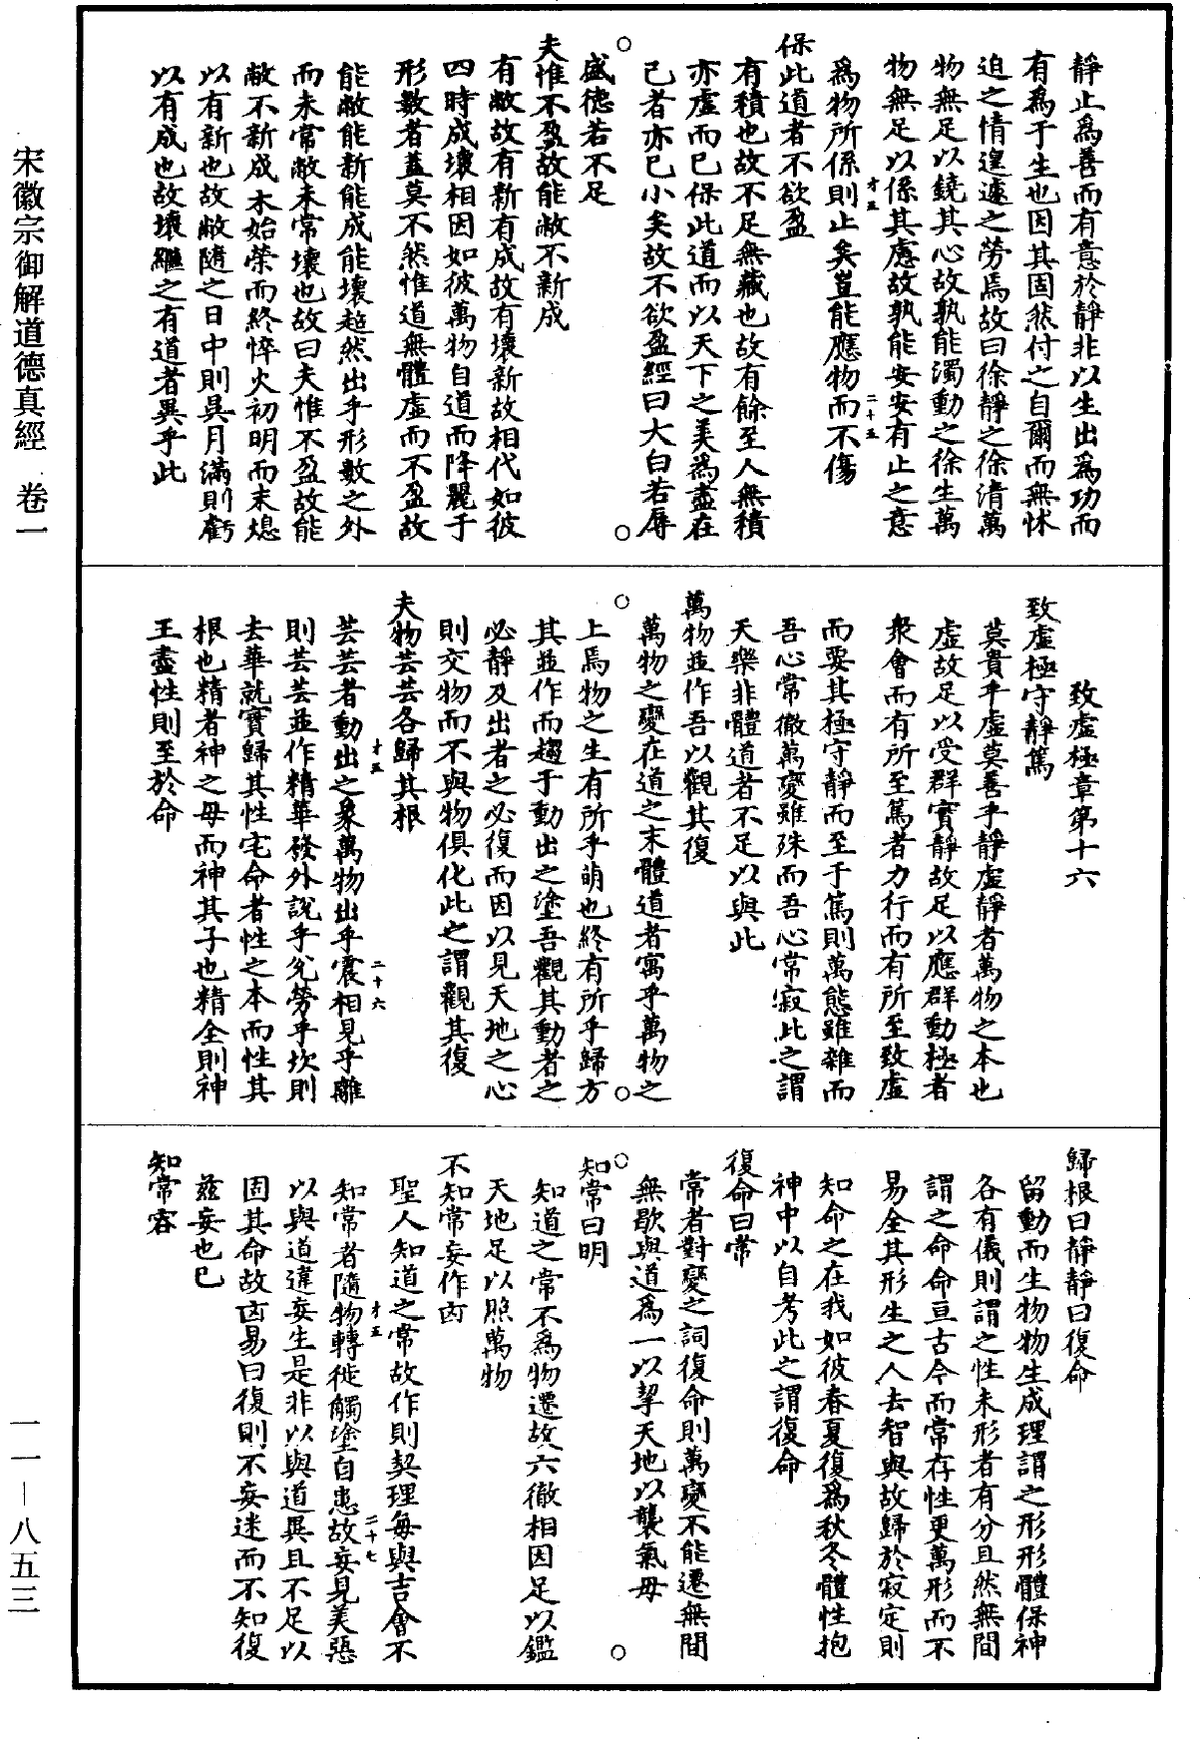 靜止爲善而有意於靜非以生出爲功而
有爲于生也因其固然付之自爾而無怵
迫之情遑遽之勞焉故曰徐靜之徐清萬
物無足以鐃其心故孰能濁動之徐生萬
物無足以係其慮故孰能安安有止之意
爲物所係則止矣豈能應物而不傷
才五
二十五
保此道者不欲盈
有積也故不足無藏也故有餘至人無積
亦虛而已保此道而以天下之美爲盡在
己者亦已小矣故不欲盈經曰大白若辱
盛德若不足
夫惟不盈故能敝不新成
有敝故有新有成故有壞新故相代如彼
四時成壞相因如彼萬物自道而降麗于
形數者蓋莫不然惟道無體虛而不盈故
能敝能新能成能壞超然出乎形數之外
而未常敝未常壞也故曰夫惟不盈故能
敝不新成木始榮而終悴火初明而末熄
以有新也故敝隨之日中則昃月滿則虧
以有成也故壞繼之有道者異乎此
致虛極章第十六
致虛極守靜篤
莫貴乎虛莫善乎靜虛靜者萬物之本也
虛故足以受群實靜故足以應群動極者
衆會而有所至篤者力行而有所至致虛
而要其極守靜而至于篤則萬態雖雜而
吾心常徹萬變雖殊而吾心常寂此之謂
天樂非體道者不足以與此
萬物並作吾以觀其復
萬物之變在道之末體道者寓乎萬物之
上焉物之生有所乎萌也終有所乎歸方
其並作而趨于動出之塗吾觀其動者之
必靜及出者之必復而因以見天地之心
則交物而不與物俱化此之謂觀其復
夫物芸芸各歸其根
才五
二十六
芸芸者動出之象萬物出乎震相見乎離
則芸芸並作精華發外說乎兌勞乎坎則
去華就實歸其性宅命者性之本而性其
根也精者神之母而神其子也精全則神
王盡性則至於命
歸根曰靜靜曰復命
留動而生物物生成理謂之形形體保神
各有儀則謂之性未形者有分且然無間
謂之命命亘古今而常存性更萬形而不
易全其形生之人去智與故歸於寂定則
知命之在我如彼春夏復爲秋冬體性抱
神中以自考此之謂復命
復命曰常
常者對變之詞復命則萬變不能遷無間
無歇與道爲一以挈天地以襲氣母
知常曰明
知道之常不爲物遷故六徹相因足以鑑
天地足以照萬物
不知常妄作凶
聖人知道之常故作則契理每與吉會不
才五
二十七
知常者隨物轉徙觸塗自患故妄見美惡
以與道違妄生是非以與道異且不足以
固其命故凶易曰復則不妄迷而不知復
茲妄也已
知常容
宋徽宗御解道德真經　卷一
一一－八五三